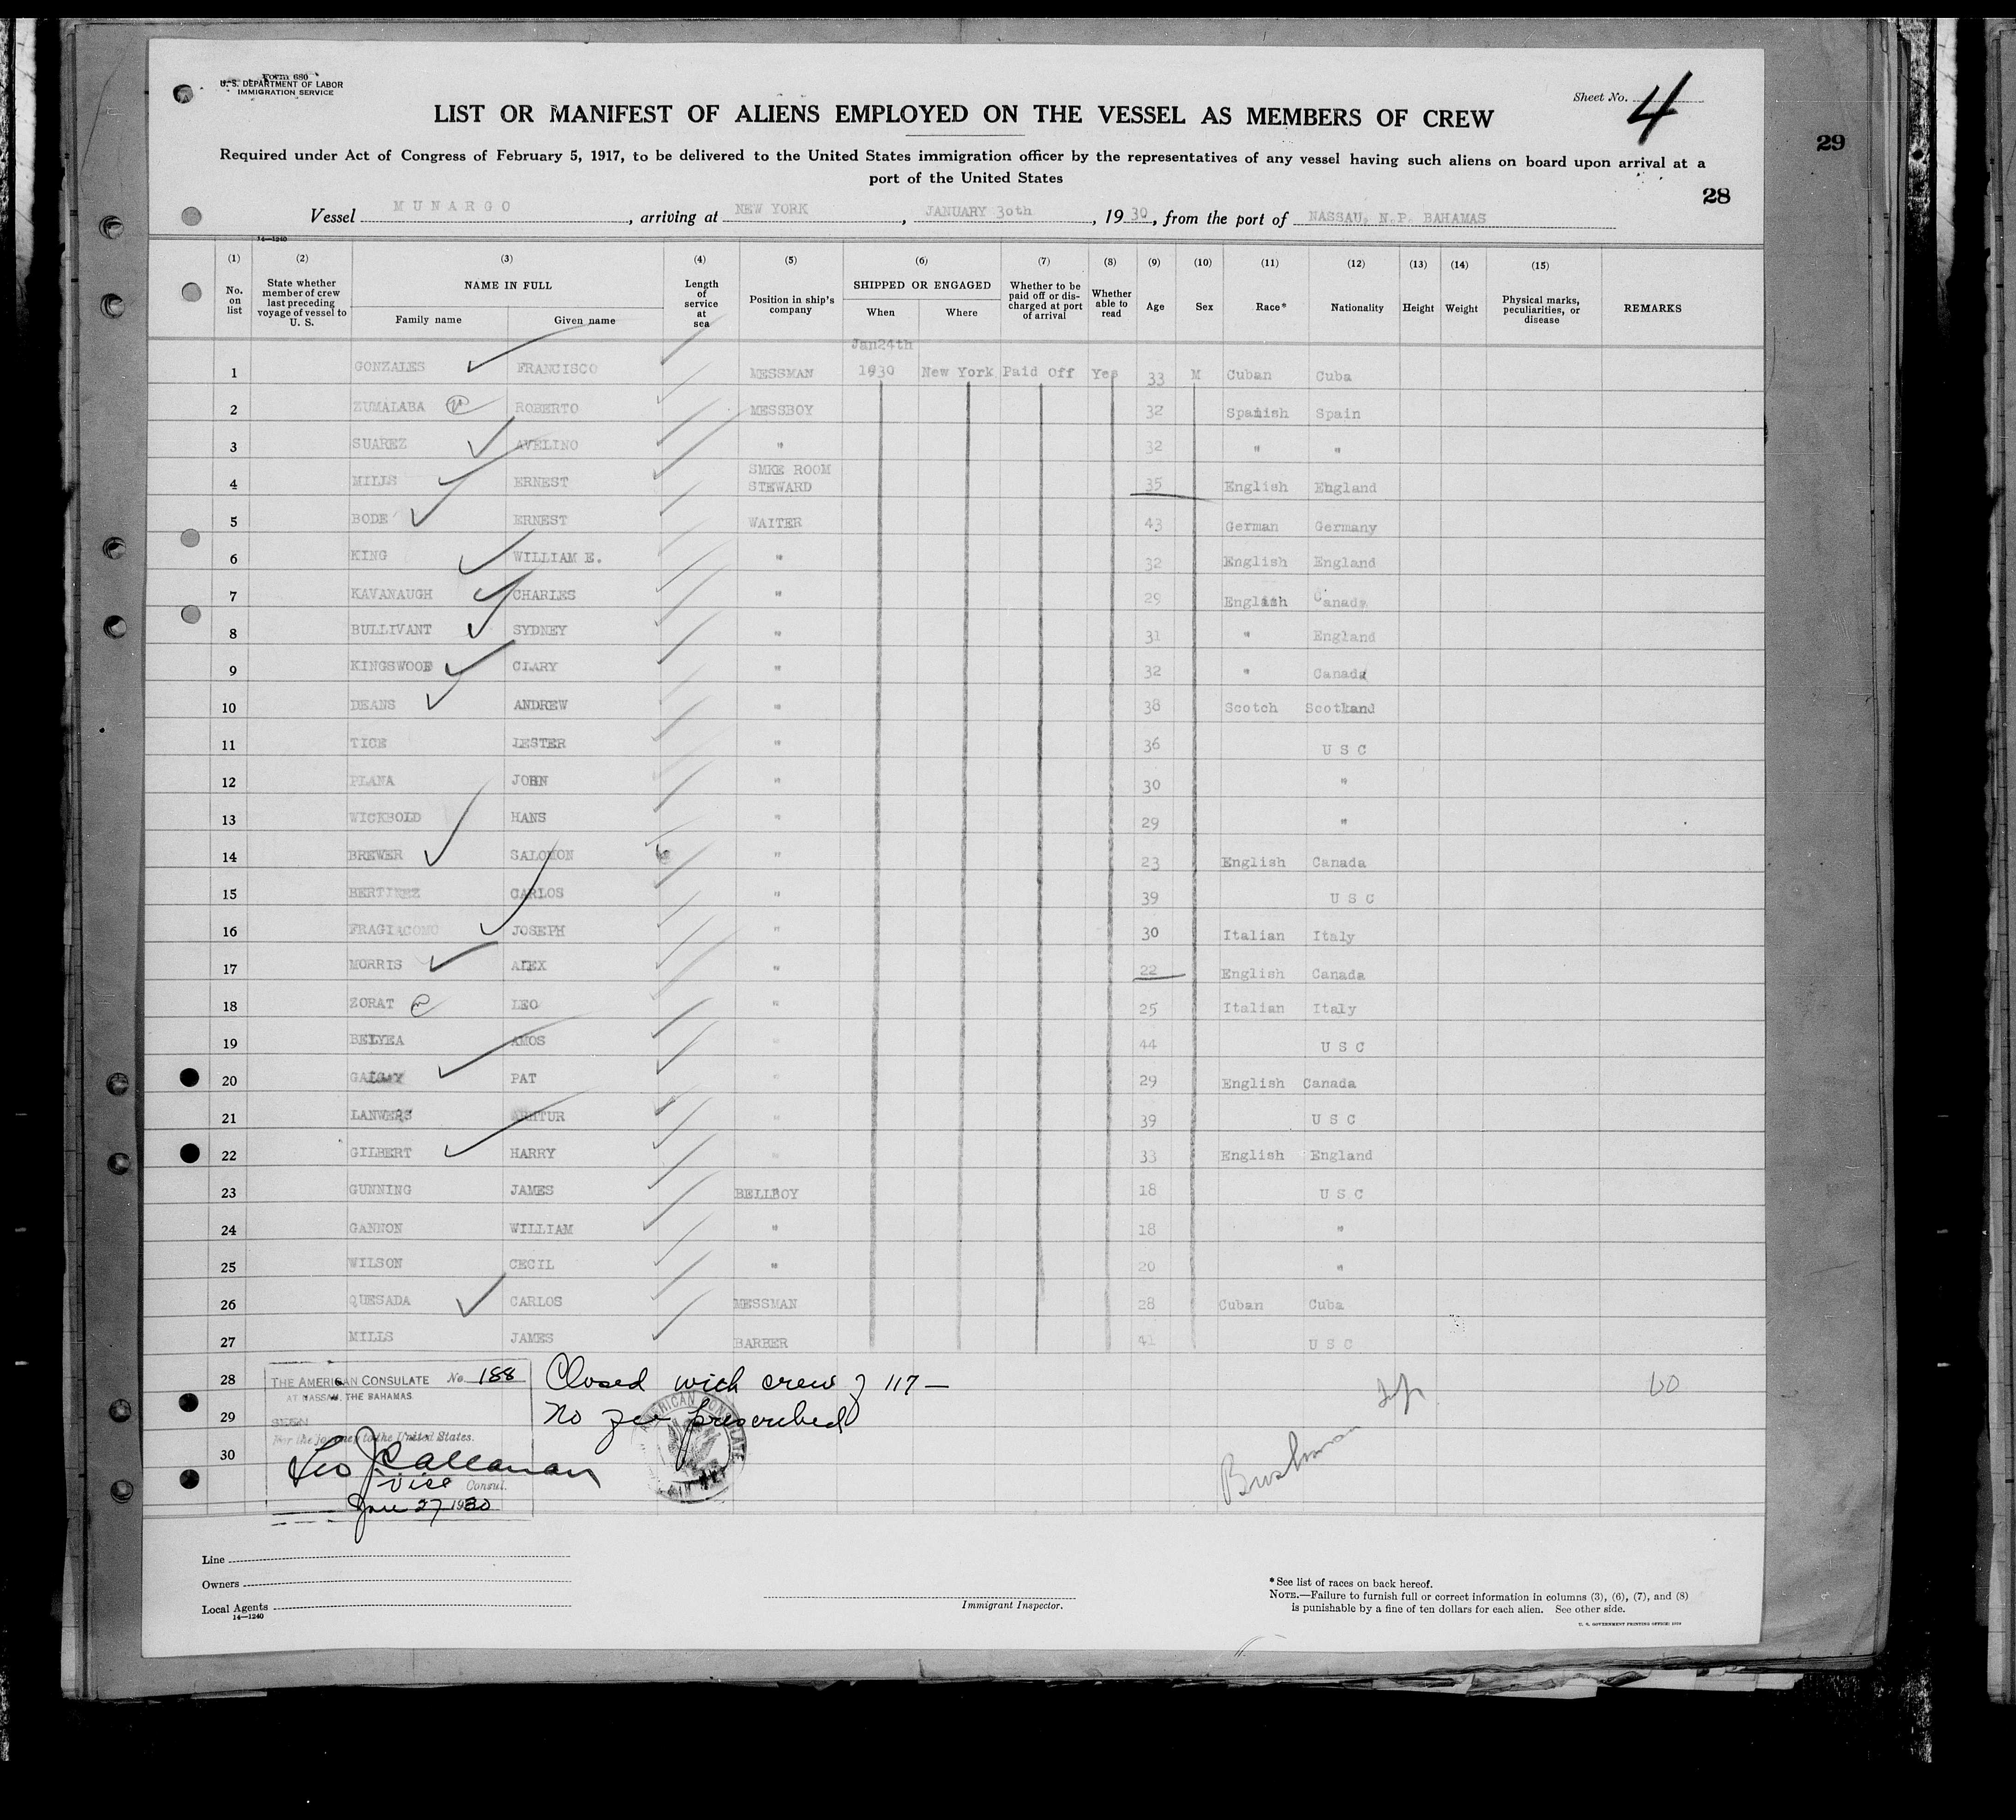 Form 680
U. S. DEPARTMENT OF LABOR
IMMIGRATION SERVICE
Sheet No. 4
LIST OR MANIFEST OF ALIENS EMPLOYED ON THE VESSEL AS MEMBERS OF CREW
29
Required under Act of Congress of February 5, 1917, to be delivered to the United States immigration officer by the representatives of any vessel having such aliens on board upon arrival at a
port of the United States
28
Vessel MUNARGO, arriving at NEW YORK, JANUARY 30th, 1930, from the port of NASSAU, N.P. BAHAMAS
14—1240
(1) (2) (3) (4) (5) (6) (7) (8) (9) (10) (11) (12) (13) (14) (15)
No. on list State whether member of crew last preceding voyage of vessel to U. S. NAME IN FULL Family name Given name Length of service at sea Position in ship's company SHIPPED OR ENGAGED When Where Whether to be paid off or discharged at port of arrival Whether able to read Age Sex Race* Nationality Height Weight Physical marks, peculiarities, or disease REMARKS
Jan24th
1 GONZALES FRANCISCO MESSMAN 1930 New York Paid Off Yes 33 M Cuban Cuba
2 ZUMALABA ROBERTO MESSBOY 32 Spanish Spain
3 SUAREZ AVELINO " 32 " "
4 MILLS ERNEST SMKE ROOM STEWARD 35 English England
5 BODE ERNEST WAITER 43 German Germany
6 KING WILLIAM E. " 32 English England
7 KAVANAUGH CHARLES " 29 English Canada
8 BULLIVANT SYDNEY " 31 " England
9 KINGSWOOD CLARY " 32 " Canada
10 DEANS ANDREW " 38 Scotch Scotland
11 TICE LESTER " 36 U S C
12 PLANA JOHN " 30 "
13 WICKBOLD HANS " 29 "
14 BREWER SALOMON " 23 English Canada
15 CARLOS " 39 U S C
16 FRAGIACOMO JOSEPH " 30 Italian Italy
17 MORRIS ALEX " 22 English Canada
18 ZORAT LEO " 25 Italian Italy
19 BELYEA AMOS " 44 U S C
20 PAT " 29 English Canada
21 LANWERS ARHTUR " 39 U S C
22 GILBERT HARRY " 33 English England
23 GUNNING JAMES BELLBOY 18 U S C
24 GANNON WILLIAM " 18 "
25 WILSON CECIL " 20 "
26 QUESADA CARLOS MESSMAN 28 Cuban Cuba
27 MILLS JAMES BARBER 41 U S C
28
29
30
THE AMERICAN CONSULATE No. 188
AT NASSAU, THE BAHAMAS.
SEEN
For the journey to the United States.
Leo J Callanan
Vice Consul.
Jan 27 1930
Closed with crew of 117—
No fee prescribed
AMERICAN CONSULATE
Bushman
Line
Owners
Local Agents
14—1240
Immigrant Inspector.
*See list of races on back hereof.
NOTE.—Failure to furnish full or correct information in columns (3), (6), (7), and (8)
is punishable by a fine of ten dollars for each alien. See other side.